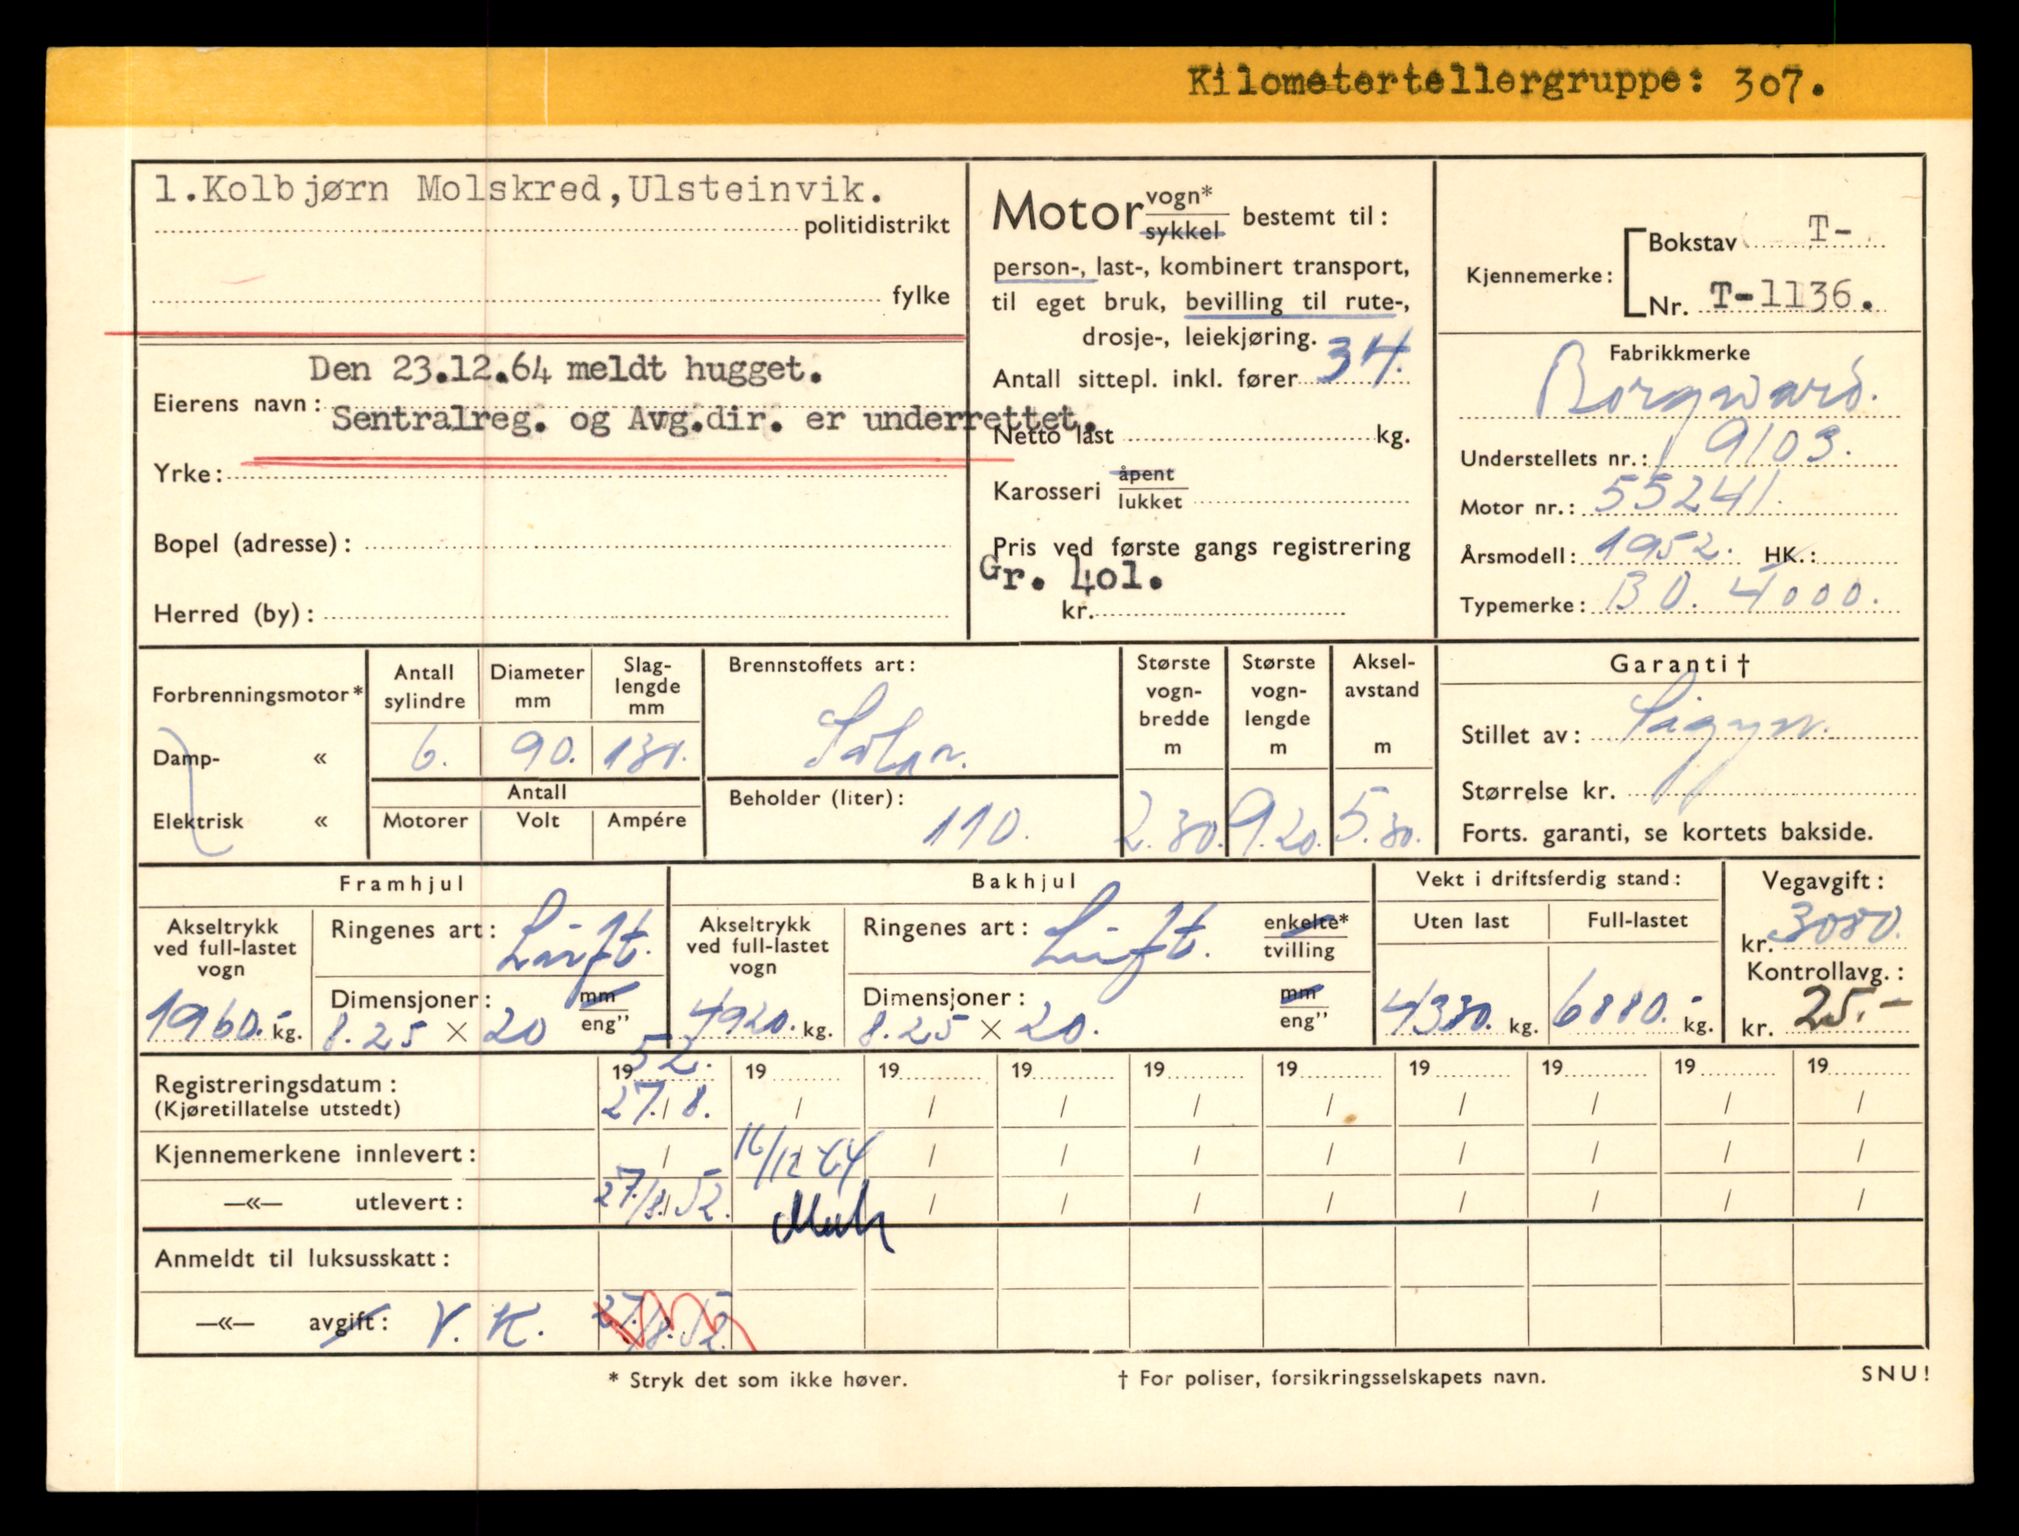 Kilometertellergruppe: 307.
1.Kolbjørn Molskred, Ulsteinvik.
politidistrikt
fylke
Den 23.12.64 meldt hugget.
Eierens navn:
Sentralreg. og Avg.dir. er underrettet.
Yrke:
Bopel (adresse):
Herred (by):
Motor vogn* sykkel bestemt til:
person-, last-, kombinert transport,
til eget bruk, bevilling til rute-,
drosje-, leiekjøring.
Antall sittepl. inkl. fører 34.
Netto last kg.
Karosseri åpent lukket
Pris ved første gangs registrering
Gr. 401.
kr.
Kjennemerke: Bokstav T-
Nr. T-1136.
Fabrikkmerke
Borgward.
Understellets nr.: 9103.
Motor nr.: 55241.
Årsmodell: 1952. HK.:
Typemerke: BO. 4000.
Forbrenningsmotor*
Damp- «
Elektrisk «
Antall sylindre
Diameter mm
Slag-lengde mm
6. 90. 131.
Antall
Motorer Volt Ampére
Brennstoffets art:
Solar.
Beholder (liter):
110.
Største vogn-bredde m
2.30.
Største vogn-lengde m
9.20.
Aksel-avstand m
5.30.
Garanti†
Stillet av: Sigyn.
Størrelse kr.
Forts. garanti, se kortets bakside.
Framhjul
Akseltrykk ved full-lastet vogn
1960.- kg.
Ringenes art: Luft.
Dimensjoner: mm eng"
8.25 × 20
Bakhjul
Akseltrykk ved full-lastet vogn
4920. kg.
Ringenes art: Luft. enkelte* tvilling
Dimensjoner: mm eng"
8.25 × 20.
Vekt i driftsferdig stand:
Uten last Full-lastet
4330. kg. 6880.- kg.
Vegavgift:
kr. 3080.
Kontrollavg.:
kr. 25.-
Registreringsdatum: 1952. 19 19 19 19 19 19 19 19 19
(Kjøretillatelse utstedt) 27./8. / / / / / / / / /
Kjennemerkene innlevert: / 16/12 64 / / / / / / / /
—«— utlevert: 27./8. 52. / / / / / / / /
Anmeldt til luksusskatt:
—«— avgift: V. K. 27./8. 52.
* Stryk det som ikke høver.
† For poliser, forsikringsselskapets navn.
SNU!